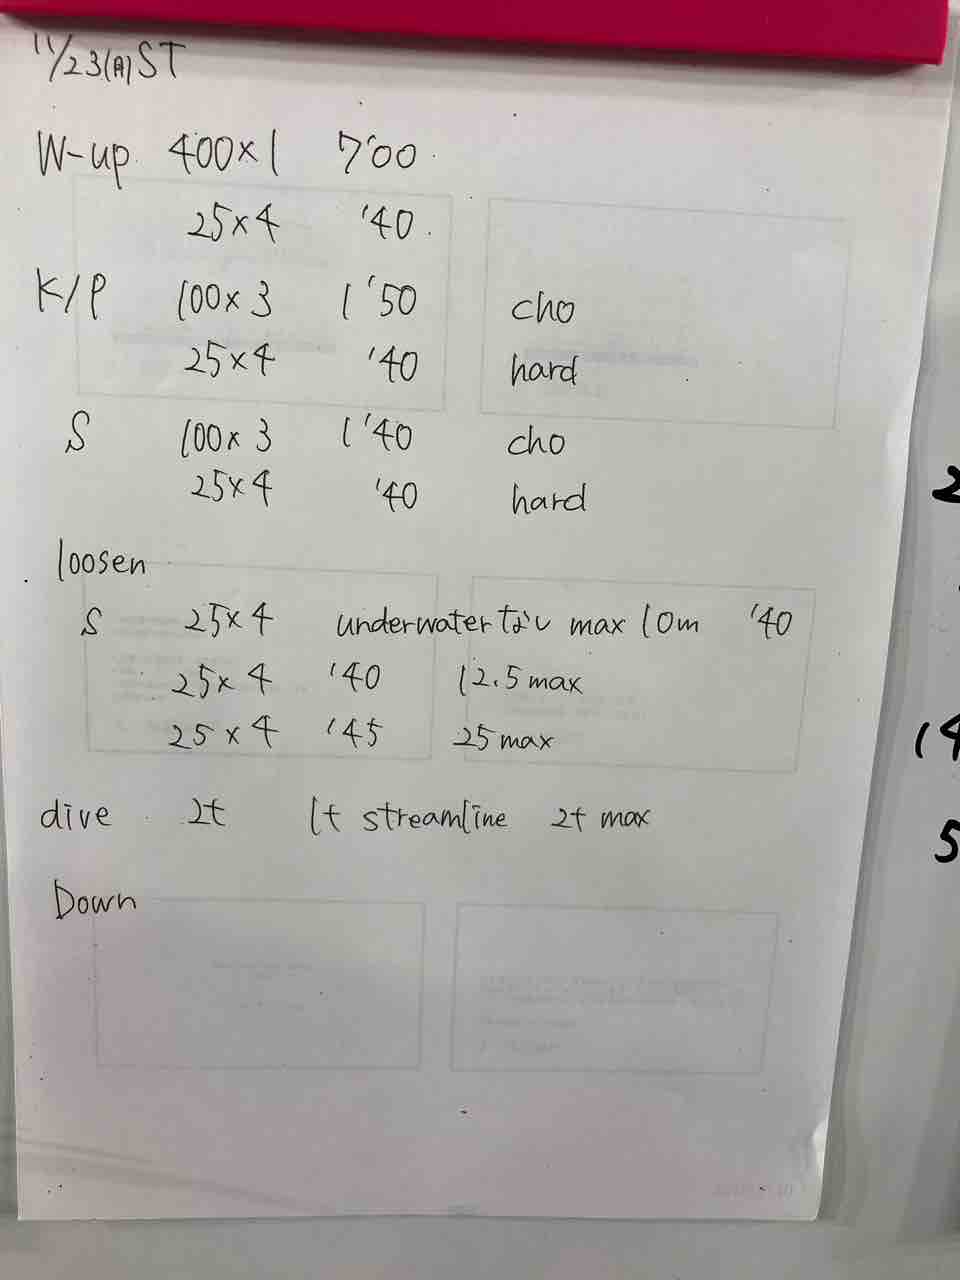 11/23(月)ST
W-up 400×1 7'00
25×4 '40
K/P 100×3 1'50 cho
25×4 '40 hard
S 100×3 1'40 cho
25×4 '40 hard
loosen
S 25×4 underwaterなし max 10m '40
25×4 '40 12.5max
25×4 '45 25max
dive 2t 1t streamline 2t max
Down
2
14
5